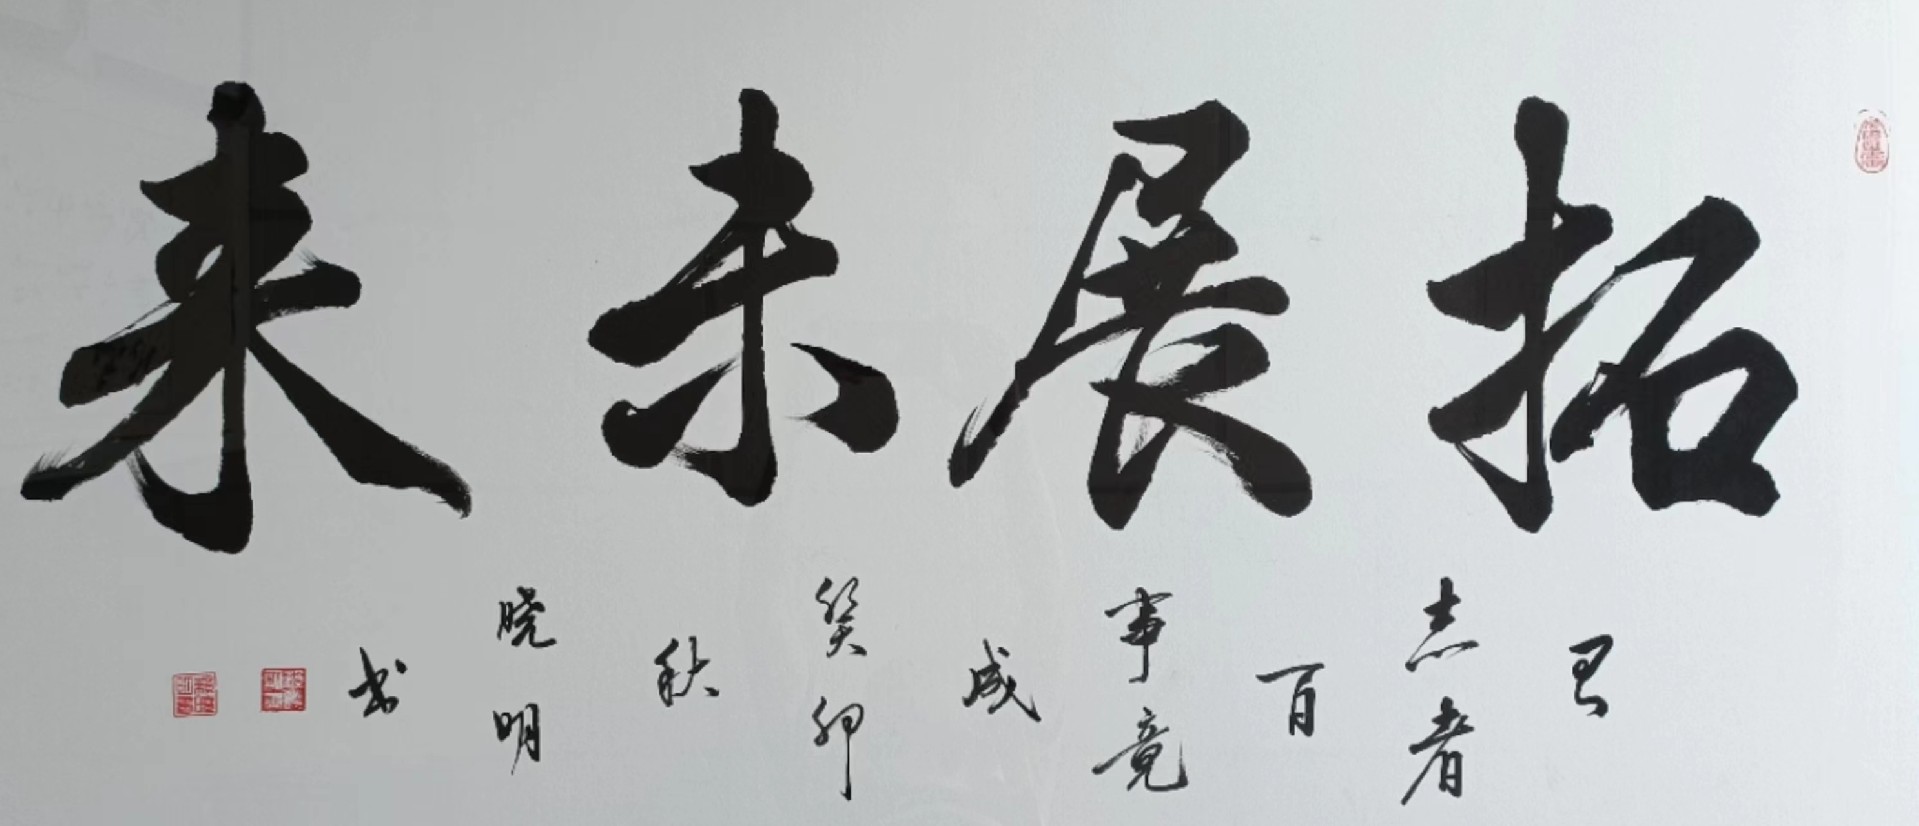 拓展未来
有志者百事竟成
癸卯秋
晓明书